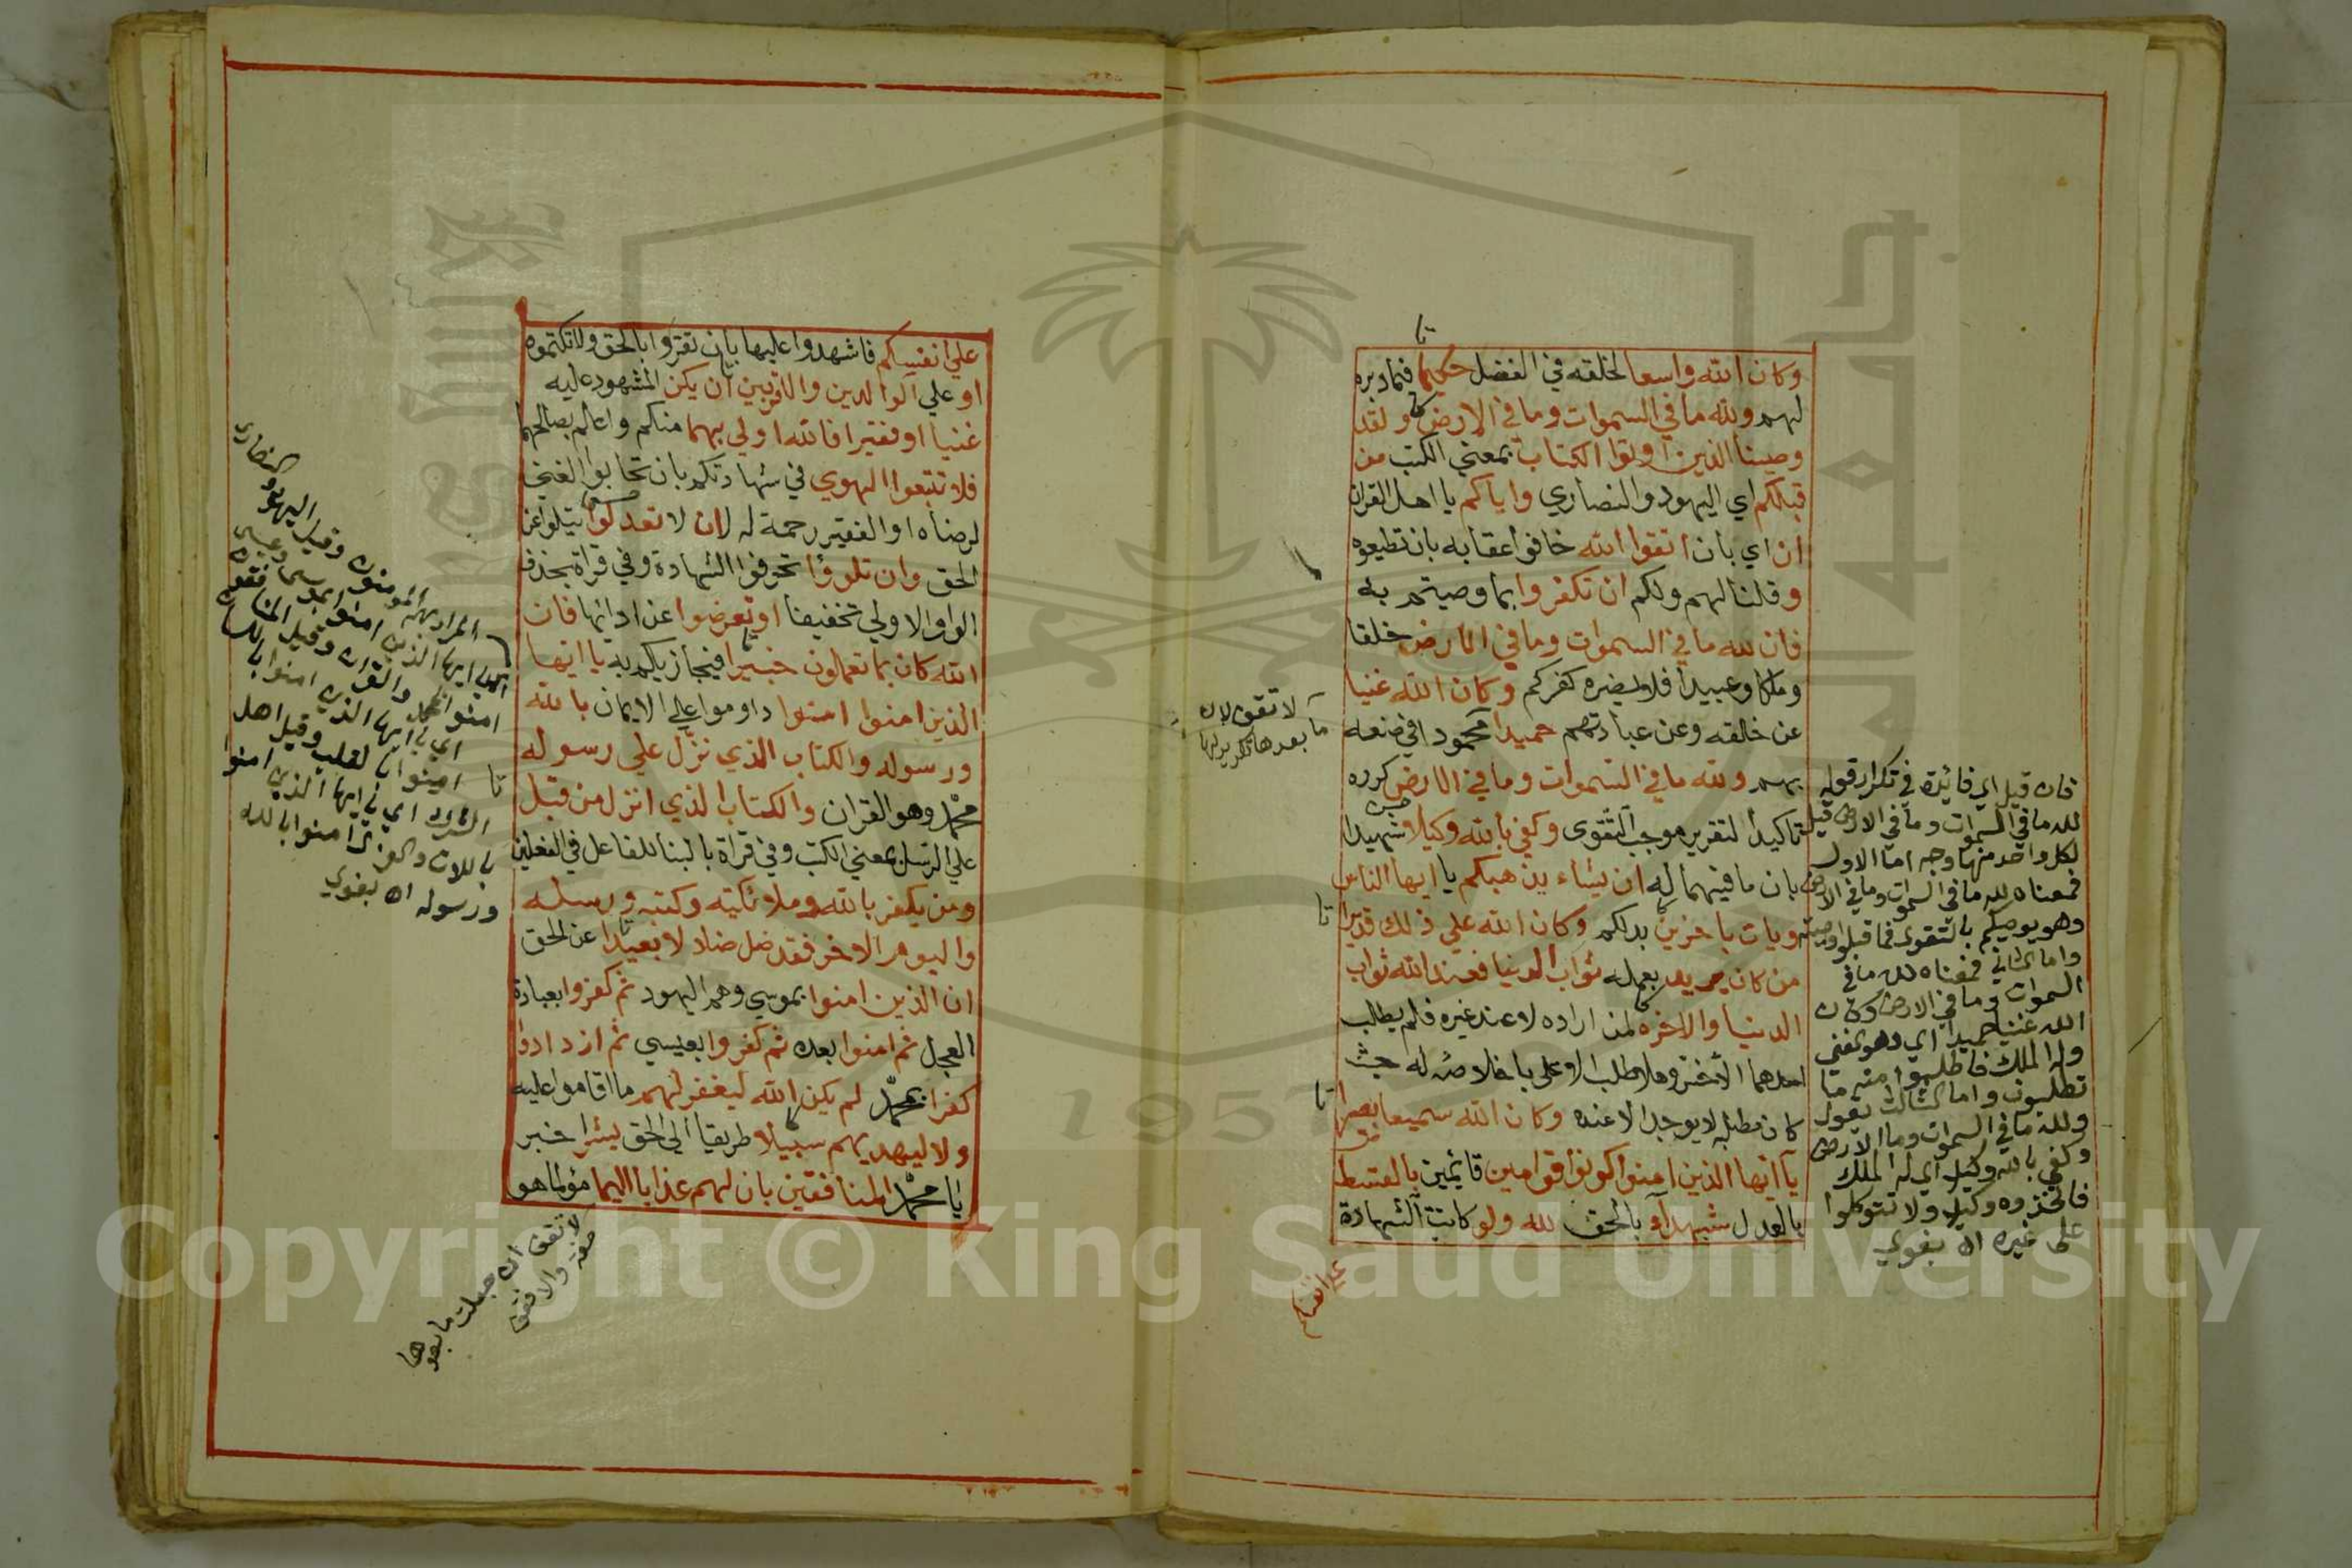 وكان الله واسعا لخلقه في الفضل حكيما فيما دبره
لهم ولله ما في السموات وما في الارض ولقد
وصينا الذين اوتوا الكتاب بمعني الكتب من
قبلكم اي اليهود والنصاري واياكم يا اهل القران
ان اي بان اتقوا الله خافوا عقابه بان تطيعوه
وقلنا لهم ولكم ان تكفروا بما وصيتم به
فان لله ما في السموات وما في الارض خلقا
وملكا وعبيدا فلا يضره كفركم وكان الله غنيا
عن خلقه وعن عبادتهم حميدا محمودا في صنعه
بهم ولله ما في السموات وما في الارض كرره
تاكيدا لتقرير موجب التقوى وكفي بالله وكيلا شهيدا
بان ما فيهما له ان يشاء يذهبكم يا ايها الناس
ويات باخرين بدلكم وكان الله علي ذلك قديرا
من كان يريد بعمله ثواب الدنيا فعند الله ثواب
الدنيا والاخرة لمن اراده لا عند غيره فلم يطلب
احدهما الاخس وهلا طلب الاعلى باخلاصه له حيث
كان مطلبه لا يوجد الا عنده وكان الله سميعا بصيرا
يا ايها الذين امنوا كونوا قوامين قائمين بالقسط
بالعدل شهداء بالحق لله ولو كانت الشهادة
علي انفسكم
لا تقف لان
ما بعدها تكرير لها
فان قيل اي فائدة في تكرار قوله
لله ما في السموات وما في الارض قيل
لكل واحد منها وجه اما الاول
فمعناه لله ما في السموات وما في الارض
وهو يوصيكم بالتقوى فاقبلوا وصيته
واما الثاني فمعناه لله ما في
السموات وما في الارض وكان
الله غنيا حميدا اي وهو الغني
وله الملك فاطلبوا منه ما
تطلبون واما الثالث يقول
ولله ما في السموات وما الارض
وكفي بالله وكيلا اي له الملك
فاتخذوه وكيلا ولا تتوكلوا
على غيره اه بغوي
علي انفسكم فاشهدوا عليها بان تقروا بالحق ولا تكتموه
او علي الوالدين والاقربين ان يكن المشهود عليه
غنيا او فقيرا فالله اولي بهما منكم واعلم بصالحهما
فلا تتبعوا الهوي في شهادتكم بان تحابوا الغني
لرضاه او الفقير رحمة له لان لا تعدلوا تميلوا عن
الحق وان تلوؤا تحرفوا الشهادة وفي قراة بحذف
الواو الاولي تخفيفا او تعرضوا عن ادائها فان
الله كان بما تعملون خبيرا فيجازيكم به يا ايها
الذين امنوا امنوا داوموا علي الايمان بالله
ورسوله والكتاب الذي نزل علي رسوله
محمد وهو القران والكتاب الذي انزل من قبل
علي الرسل بمعني الكتب وفي قراة بالبنا للفاعل في الفعلين
ومن يكفر بالله وملائكته وكتبه ورسله
واليوم الاخر فقد ضل ضلالا بعيدا عن الحق
ان الذين امنوا بموسي وهم اليهود ثم كفروا بعبادة
العجل ثم امنوا بعده ثم كفروا بعيسي ثم ازدادوا
كفرا بمحمد لم يكن الله ليغفر لهم ما اقاموا عليه
ولا ليهديهم سبيلا طريقا الي الحق بشر اخبر
يا محمد المنافقين بان لهم عذابا اليما مؤلما هو
المراد بهم المومنون وقيل اليهود والنصاري
اي يا ايها الذين امنوا بموسى وعيسى
امنوا بمحمد والقران وقيل المنافقون
اي يا ايها الذين امنوا باللسان
امنوا بالقلب وقيل اهل
الشرك اي يا ايها الذين امنوا
باللات والعزى امنوا بالله
ورسوله اه بغوي
لا تقف ان جعلت ما بعدها
صفة والا فقف
1957
Copyright © King Saud University